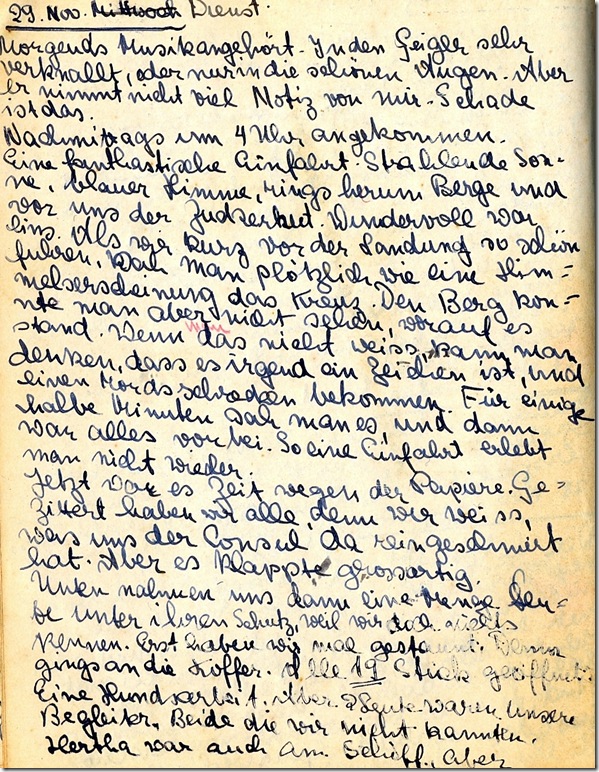 29. Nov. Mittwoch Dienst.
Morgends Musikangehört. In den Geiger sehr
verknallt, oder nur in die schönen Augen. Aber
er nimmt nicht viel Notiz von mir. Schade
ist das.
Nachmittags um 4 Uhr angekommen.
Eine fanthastische Einfahrt. Strahlende Son-
ne, blauer Himme, rings herum Berge und
vor uns der Zuckerhut. Wundervoll war
eins. Als wir kurz vor der Landung so schön
fuhren, kam man plötzlich wie eine Him-
melserscheinung das Kreuz. Den Berg kon-
nte man aber nicht sehen, worauf es
stand. Wenn man das nicht weiss, kann man
denken, dass es irgend ein Zeichen ist, und
einen Mordsschrecken bekommen. Für einige
halbe Minuten sah man es, und dann
war alles vorbei. So eine Einfahrt erlebt
man nicht wieder.
Jetzt war es Zeit wegen der Papiere. Ge-
zittert haben wir alle, denn wer weiss,
was uns der Consul da reingeschmiert
hat. Aber es klappte grossartig.
Unten nahmen uns dann eine Menge Leu-
te unter ihren Schutz, weil wir doch nichts
kennen. Erst haben wir mal gestaunt. Dann
gings an die Koffer. Alle 19 Stück geöffnet.
Eine Hundearbeit. Aber 2 Leute waren unsere
Begleiter. Beide die wir nicht kannten.
Hertha war auch am Schiff, aber